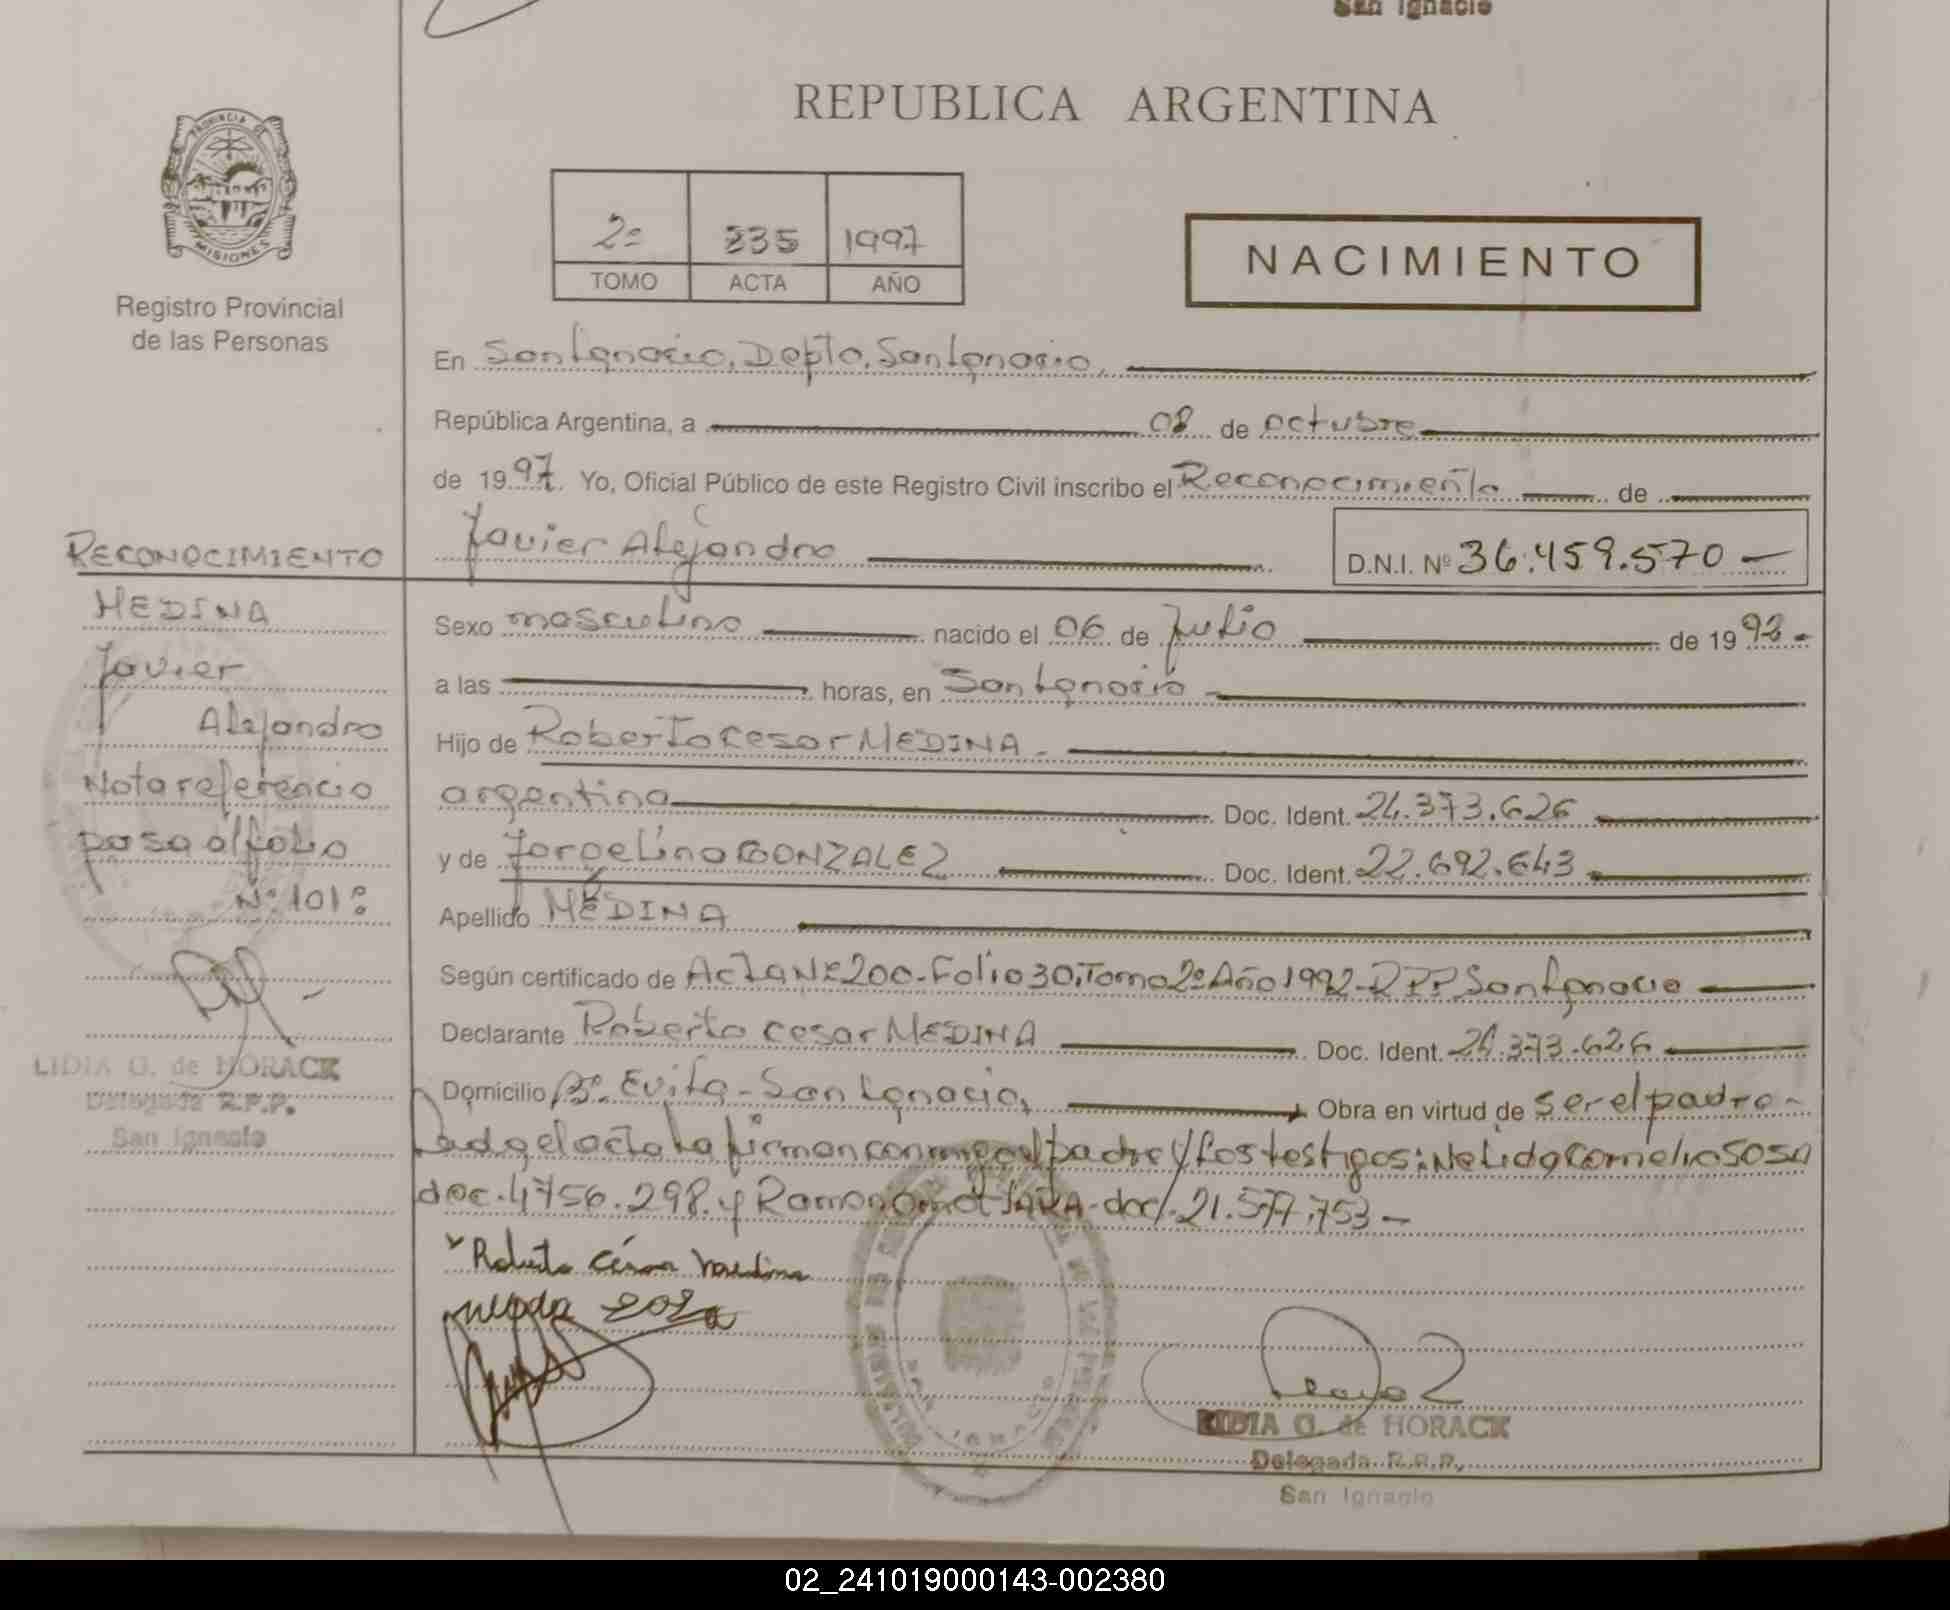 San Ignacio
REPUBLICA ARGENTINA
PROVINCIA DE
MISIONES
Registro Provincial
de las Personas
2º 335 1997
TOMO ACTA AÑO
NACIMIENTO
En San Ignacio, Depto. San Ignacio,
República Argentina, a 08 de octubre
de 1997. Yo, Oficial Público de este Registro Civil inscribo el Reconocimiento de
Javier Alejandro
D.N.I. Nº 36.459.570
RECONOCIMIENTO
MEDINA
Javier
Alejandro
Nota referencia
pasa al folio
Nº 101
LIDIA G. de HORACK
Delegada R.P.P.
San Ignacio
Sexo masculino nacido el 06 de Julio de 1992
a las horas, en San Ignacio
Hijo de Roberto Cesar MEDINA
argentina Doc. Ident. 24.373.626
y de Jorgelina GONZALEZ Doc. Ident. 22.692.643
Apellido MEDINA
Según certificado de Acta Nº 200-Folio 30, Tomo 2º Año 1992-RPP San Ignacio
Declarante Roberto Cesar MEDINA Doc. Ident. 24.373.626
Domicilio Bº. Evita-San Ignacio, Obra en virtud de ser el padre-
Leída el acta la firman conmigo el padre y los testigos: Nelida Cornelia SOSA
doc. 4.756.298. y Ramon Omar JARA-doc. 21.577.753-
Roberto César Medina
Sosa
SAN IGNACIO
LIDIA G. de HORACK
Delegada R.P.P.
San Ignacio
02_241019000143-002380